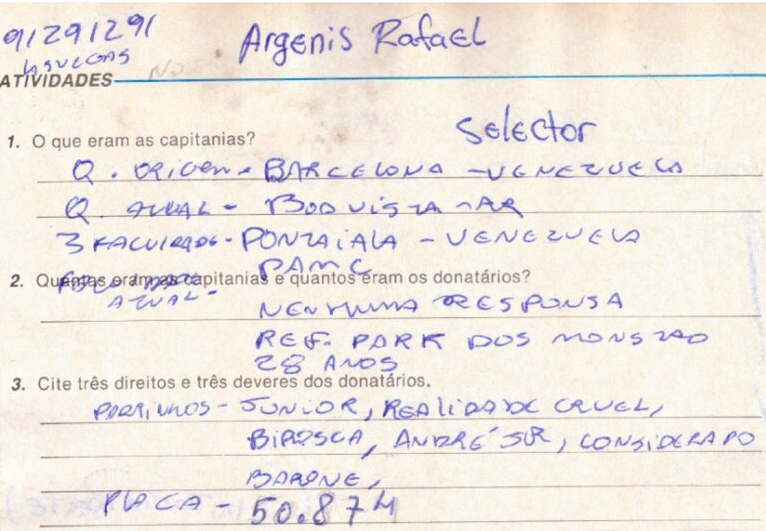 91291291
Argenis Rafael
ATIVIDADES NO
Selector
1. O que eram as capitanias?
Q. ORIGEN - BARCELONA - VENEZUELA
Q. ATUAL - BOA VISTA - RR
3 FACULDADE - PONTA ALA - VENEZUELA
PAMC
2. Quantas eram as capitanias e quantos eram os donatários?
ATUAL -
NENHUMA RESPONSA
REF. PARK DOS MONSTRO
28 ANOS
3. Cite três direitos e três deveres dos donatários.
PADRINHOS - JUNIOR, REALIDADE CRUEL,
BIROSCA, ANDRÉ JR, CONSIDERADO
BARONE,
PLACA - 50.874